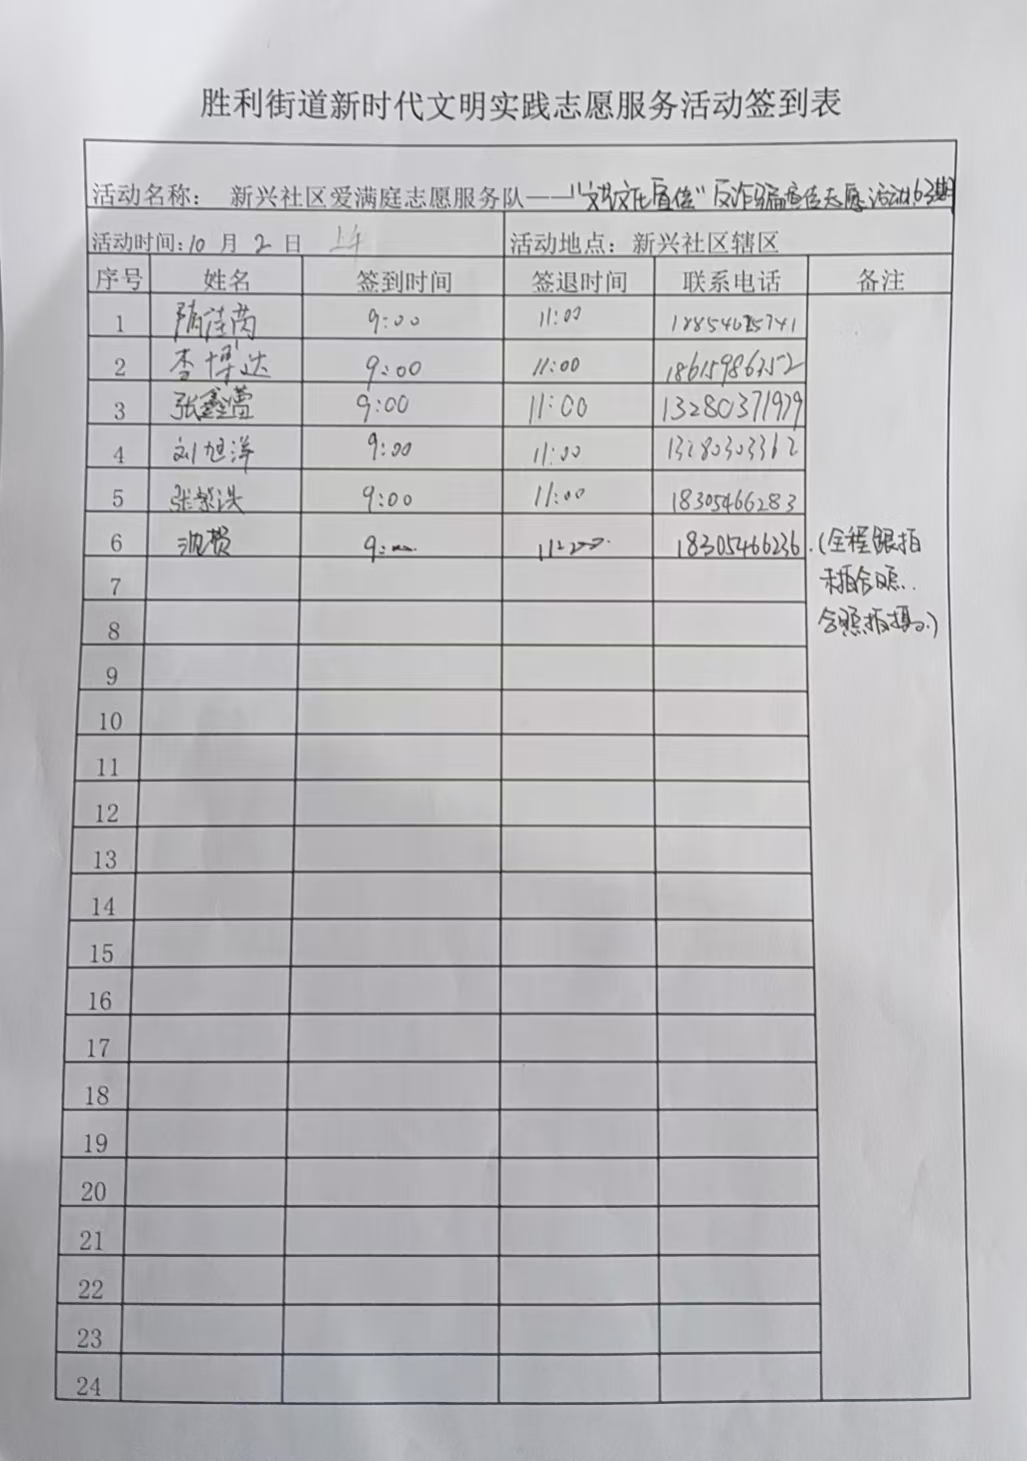 胜利街道新时代文明实践志愿服务活动签到表
活动名称： 新兴社区爱满庭志愿服务队——"文化宣传"反诈骗宣传志愿活动63期
活动时间:10 月 2 日 上午 活动地点：新兴社区辖区
序号 姓名 签到时间 签退时间 联系电话 备注
1 隋佳芮 9:00 11:00
2 李博达 9:00 11:00 18615986352
3 张鑫 9:00 11:00 13280371979
4 刘旭洋 9:00 11:00 13280303362
5 张洪 9:00 11:00 18305466283
6 沈赞 9:00 11:00 18305466236 (全程跟拍
7 未拍合照..
8 合照拍摄.)
9
10
11
12
13
14
15
16
17
18
19
20
21
22
23
24